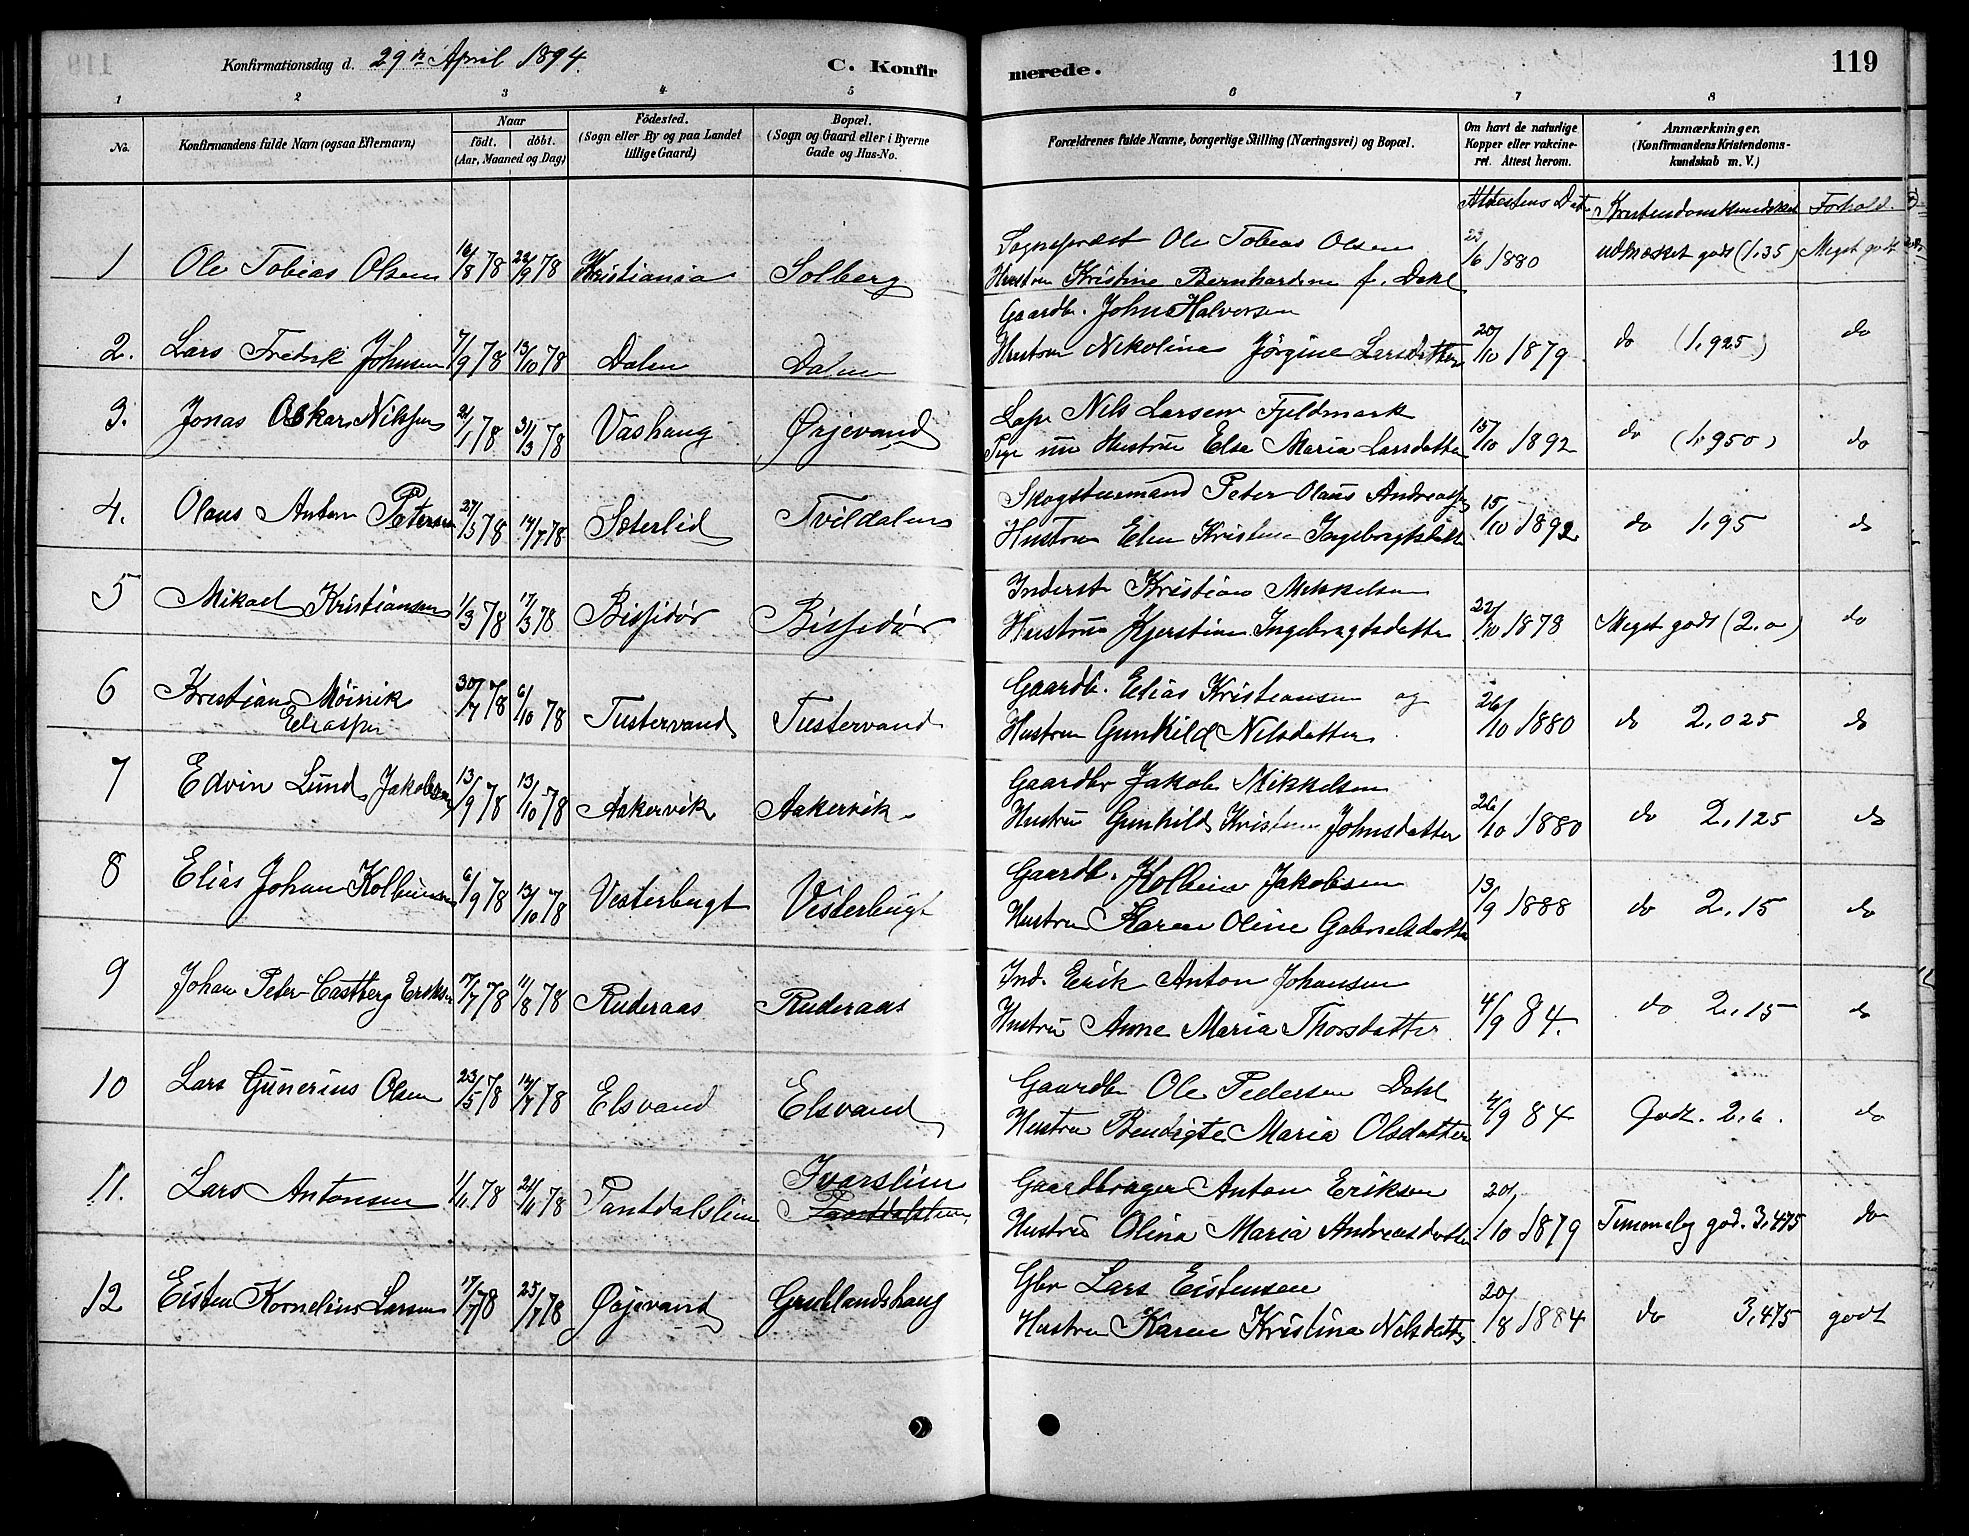 Konfirmationsdag d. 29de April 1894.
C. Konfirmerede.
119
1 2 3 4 5 6 7 8
No.
Konfirmandens fulde Navn (ogsaa Efternavn)
Naar
født. døbt.
(Aar, Maaned og Dag)
Fødested.
(Sogn eller By og paa Landet
tillige Gaard)
Bopæl.
(Sogn og Gaard eller i Byerne
Gade og Hus-No.
Forældrenes fulde Navne, borgerlige Stilling (Næringsvei) og Bopæl.
Om havt de naturlige
Kopper eller vakcine-
ret. Attest herom.
Anmærkninger.
(Konfirmandens Kristendoms-
kundskab m. V.)
Attestens Dat Kristendomskundskab Forhold.
1 Ole Tobias Olsen 16/8 78 22/9 78 Kristiania Solberg
Sognepræst Ole Tobias Olsen
Hustru Kristine Bernhardine f. Dahl
23/6 1880 udmærket godt (1,35) Meget godt
2. Lars Fredrik Johnsen 7/9 78 13/10 78 Dalen Dalen
Gaardbr. John Halvorsen
Hustru Nikolina Jørgine Larsdatter
20/10 1879 do (1,925) do
3. Jonas Oskar Nilssen 21/1 78 31/3 78 Vashaug Ørjevand
Lap Nils Larsen Fjeldmark
Pige nu Hustru Elsa Maria Larsdatter
15/10 1892 do (1,950) do
4. Olaus Anton Petersen 27/5 78 14/7 78 Sæterlid Tvildalen
Skogsturmand Peter Olaus Andreassen
Hustru Elen Kristine Ingebrigtsdatt
15/10 1892 do 1,95 do
5 Mikael Kristiansen 1/3 78 17/3 78 Bissidør Bissidør
Inderst Kristian Mikkelsen
Hustru Kjerstine Ingebrigtsdatter
22/10 1878 Meget godt (2.0) do
6 Kristian Møinik
Eliassen 30/7 78 6/10 78 Tustervand Tustervand
Gaardb. Elias Kristiansen og
Hustru Gunhild Nilsdatter
26/10 1880 do 2,025 do
7 Edvin Lund Jakobsen 13/9 78 13/10 78 Aakervik Aakervik
Gaardbr Jakob Mikkelsen
Hustru Gunhild Kristine Johnsdatter
26/10 1880 do 2,125 do
8 Elias Johan Kolbeinsen 6/9 78 13/10 78 Vesterbugt Vesterbugt
Gaardb. Kolbein Jakobsen
Hustru Karen Oline Gabrielsdatter
13/9 1888 do 2,15 do
9 Johan Peter Castberg Eriksen 17/7 78 11/8 78 Ruderaas Ruderaas
Ind. Erik Anton Johansen
Hustru Anne Maria Thorsdatter
4/9 84. do 2,15 do
10 Lars Gunerius Olsen 23/5 78 14/7 78 Elsvand Elsvand
Gaardbr Ole Pedersen Dahl
Hustru Bendigte Maria Olsdatter
4/9 84 Godt. 2,6. do
11. Lars Antonsen 1/11 78 24/11 78 Pantdalslien Ivarslien
Pantdalslien
Gaardbruger Anton Eriksen
Hustru Olina Maria Andreasdatter
20/10 1879 Temmelig god. 3,475 do
12 Eisten Kornelius Larsen 17/7 78 25/7 78 Øiejevand Grublandshaug
Gbr Lars Eistensen
Hustru Karen Kristina Nilsdatter
20/8 1884 do 3,475 godt